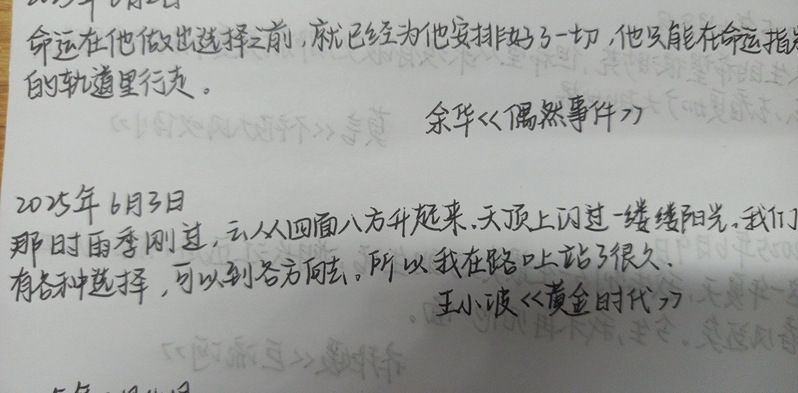 2025年6月2日
命运在他做出选择之前，就已经为他安排好了一切，他只能在命运指定
的轨道里行走。
余华<<偶然事件>>
2025年6月3日
那时雨季刚过，云从四面八方升起来、天顶上闪过一缕缕阳光。我们
有各种选择，可以到各方向去。所以我在路口上站了很久、
王小波<<黄金时代>>